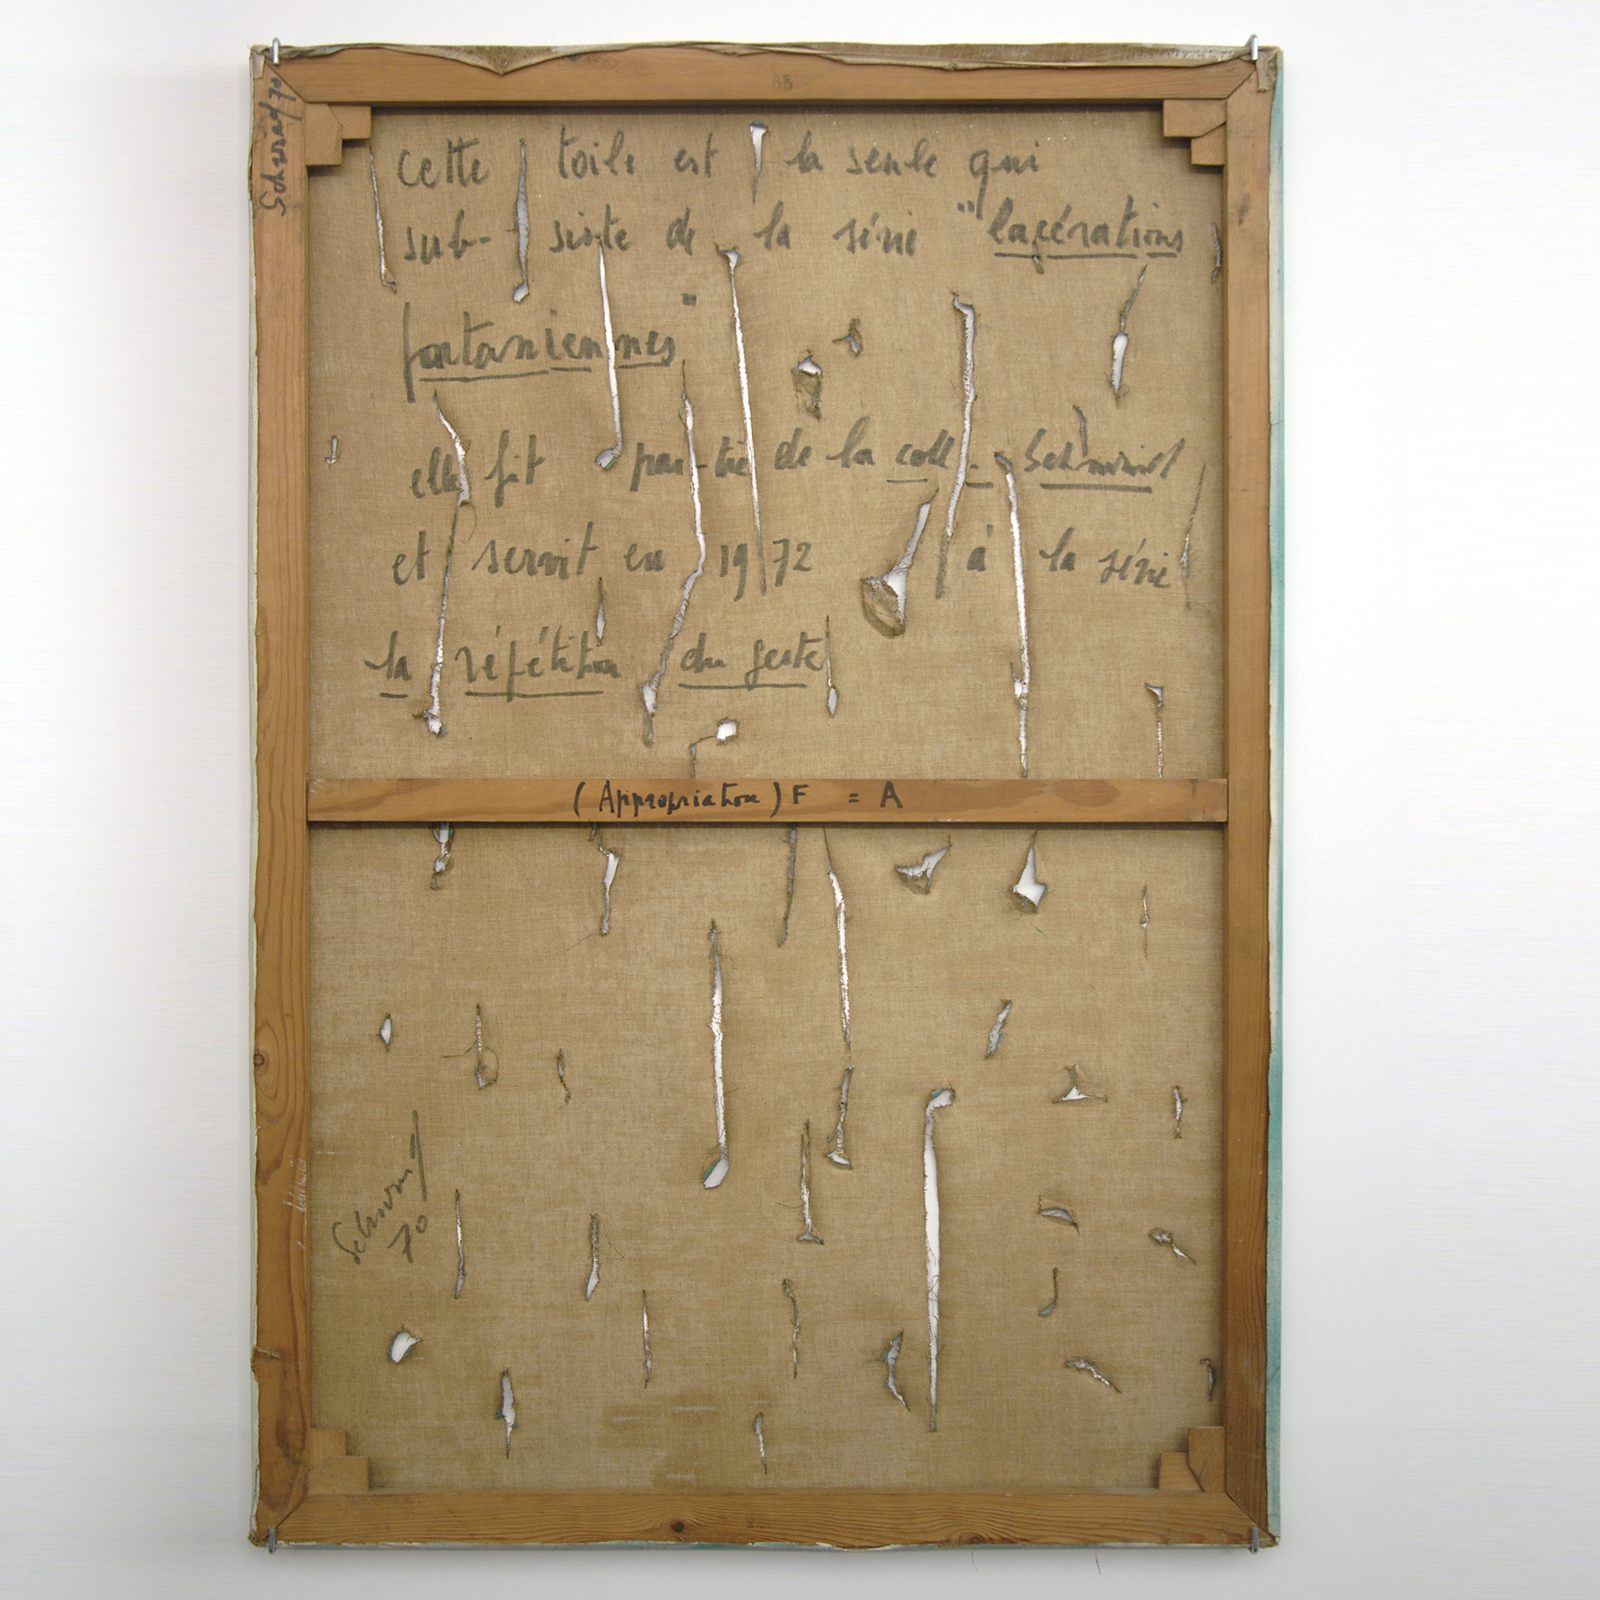 cette toile est la seule qui
sub-siste de la série "lacérations
fontaniennes"
elle fit par-tie de la coll.
et servit en 1972 à la série
la répétition du geste
(Appropriation) F = A
70
70